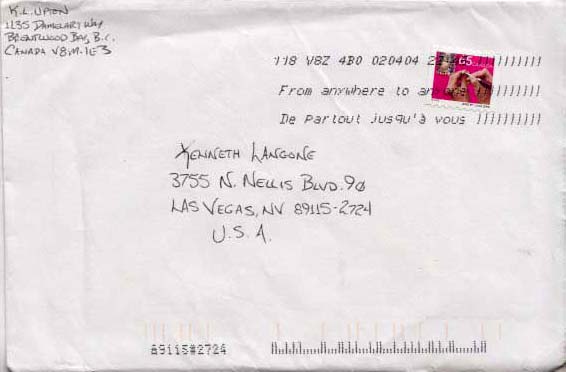 K.L. UPTON
1135 DAMELART WAY
BRENTWOOD BAY, B.C.
CANADA V8M-1E3
118 V8Z 4B0 020404
From anywhere to anyone
De partout jusqu'à vous
65
KENNETH LANGONE
3755 N. NELLIS BLVD. 90
LAS VEGAS, NV 89115-2724
U.S.A.
89115#2724